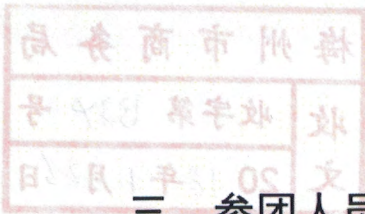 梅州市商务局
收文
收字第 号
20 年 月 日
三、参团人员